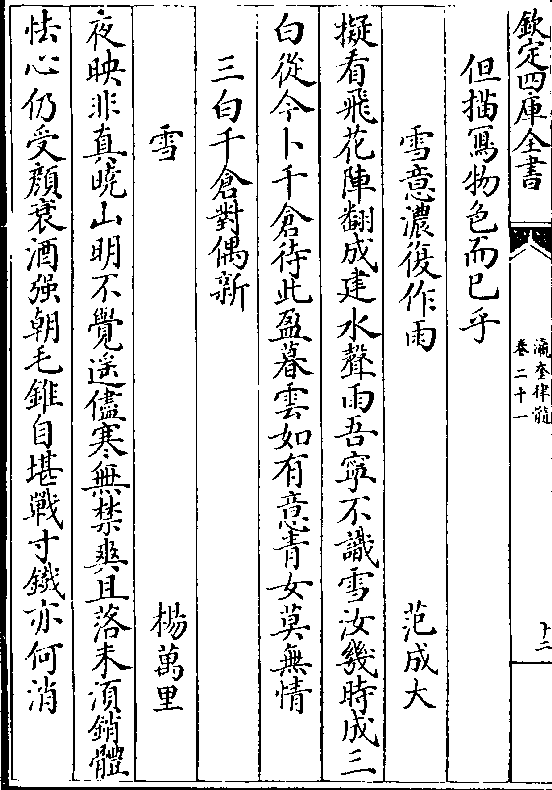 欽定四庫全書
瀛奎律髓
卷二十一
十二
但描寫物色而已乎
雪意濃復作雨
范成大
擬看飛花陣翻成建水聲雨吾寧不識雪汝幾時成三
白從今卜千倉待此盈暮雲如有意青女莫無情
三白千倉對偶新
雪
楊萬里
夜映非真曉山明不覺遥儘寒無禁爽且落未須銷體
怯心仍受顔衰酒强朝毛錐自堪戰寸鐵亦何消